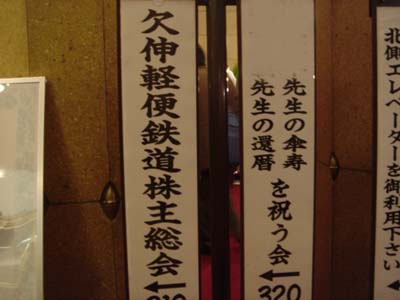 欠伸軽便鉄道株主総会
←
310
先生の傘寿
先生の還暦
を祝う会
←
320
北側エレベーターを御利用下さい